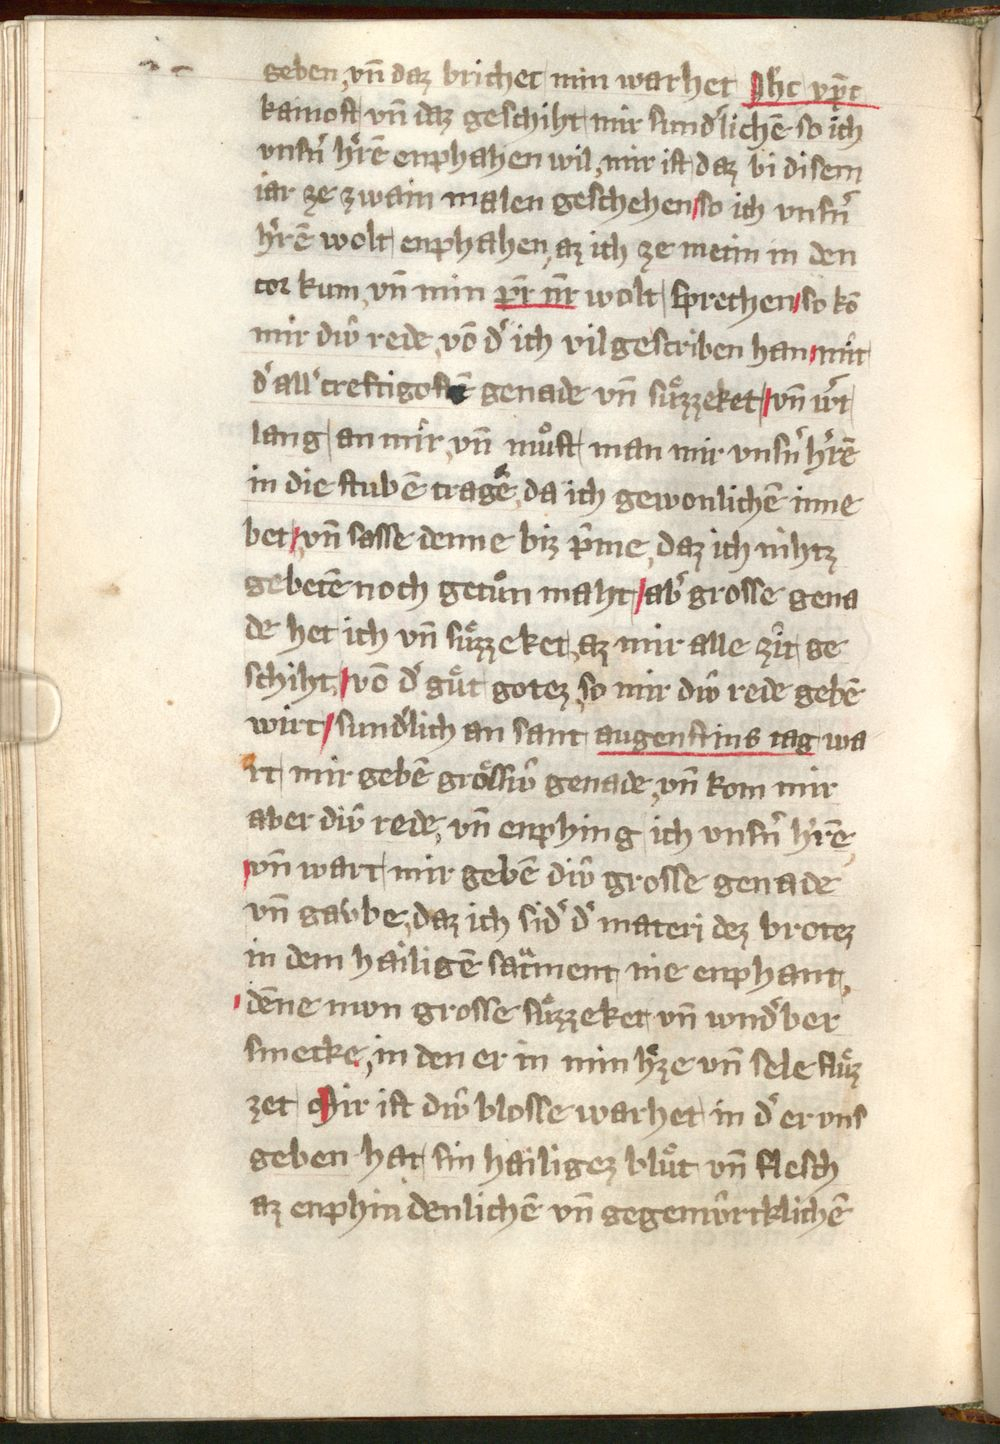 geben, vn̄ daz brichet min warhet Jhc xp̄c
kamost vn̄ daz geschiht mir sund͛lichē so ich
vnsn͛ h͛rē enphahen wil, mir ist daz bi disem
iar ze zwain malen geschehen so ich vnsn͛
h͛rē wolt enphahen, az ich ze metin in den
cor kum, vn̄ min pr̄ nr̄ wolt sprechen so kō
mir diŵ rede, vō d͛ ich vil gescriben han mit
d͛ all͛ creftigosten genade vn̄ sůzzeket vn̄ w͛t
lang an mir, vn̄ můst man mir vnsn͛ h͛rē
in die stubē tragē, da ich gewonlichē inne
bet vn̄ sasse denne biz p̄me, daz ich nihtz
gebetē noch getůn maht ab͛ grosse gena
de het ich vn̄ sůzzeket, az mir alle zît ge
schiht, vō d͛ gůt gotez, so mir diŵ rede gebē
wirt sund͛lich an sant augenstins tag wa
rt mir gebē grôssiŵ genade, vn̄ kom mir
aber diŵ rede, vn̄ enphing ich vnsn͛ h͛rē,
vn̄ wart mir gebē diŵ grosse genade
vn̄ gavbe, daz ich sid͛ d͛ materi dez brotez
in dem hailigē sac͛ment nie enphant,
dēne nwon grosse sůzzeket vn̄ wnd͛ber
smecke, in den er in min h͛ze vn̄ sele flůz
zet Mir ist diŵ blosse warhet in d͛ er vns
geben hat sin hailigez blůt vn̄ flesch
az enphindenlichē vn̄ gegenŵrtklichē